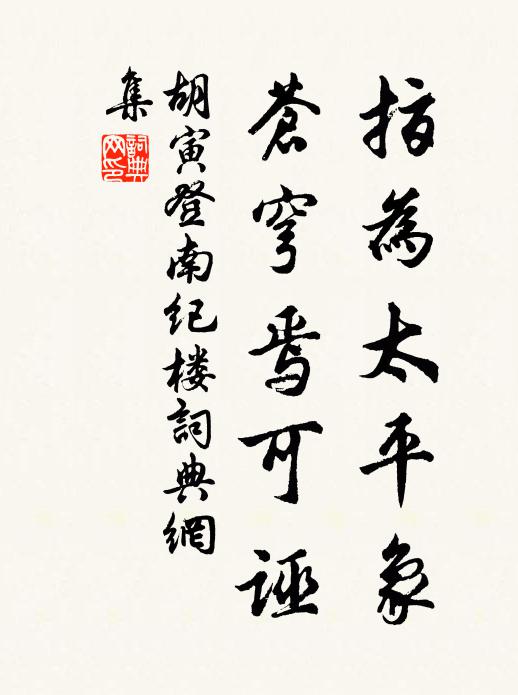 指為太平象
蒼穹焉可誣
胡寅登南纪楼詞典網
集
詞典网印